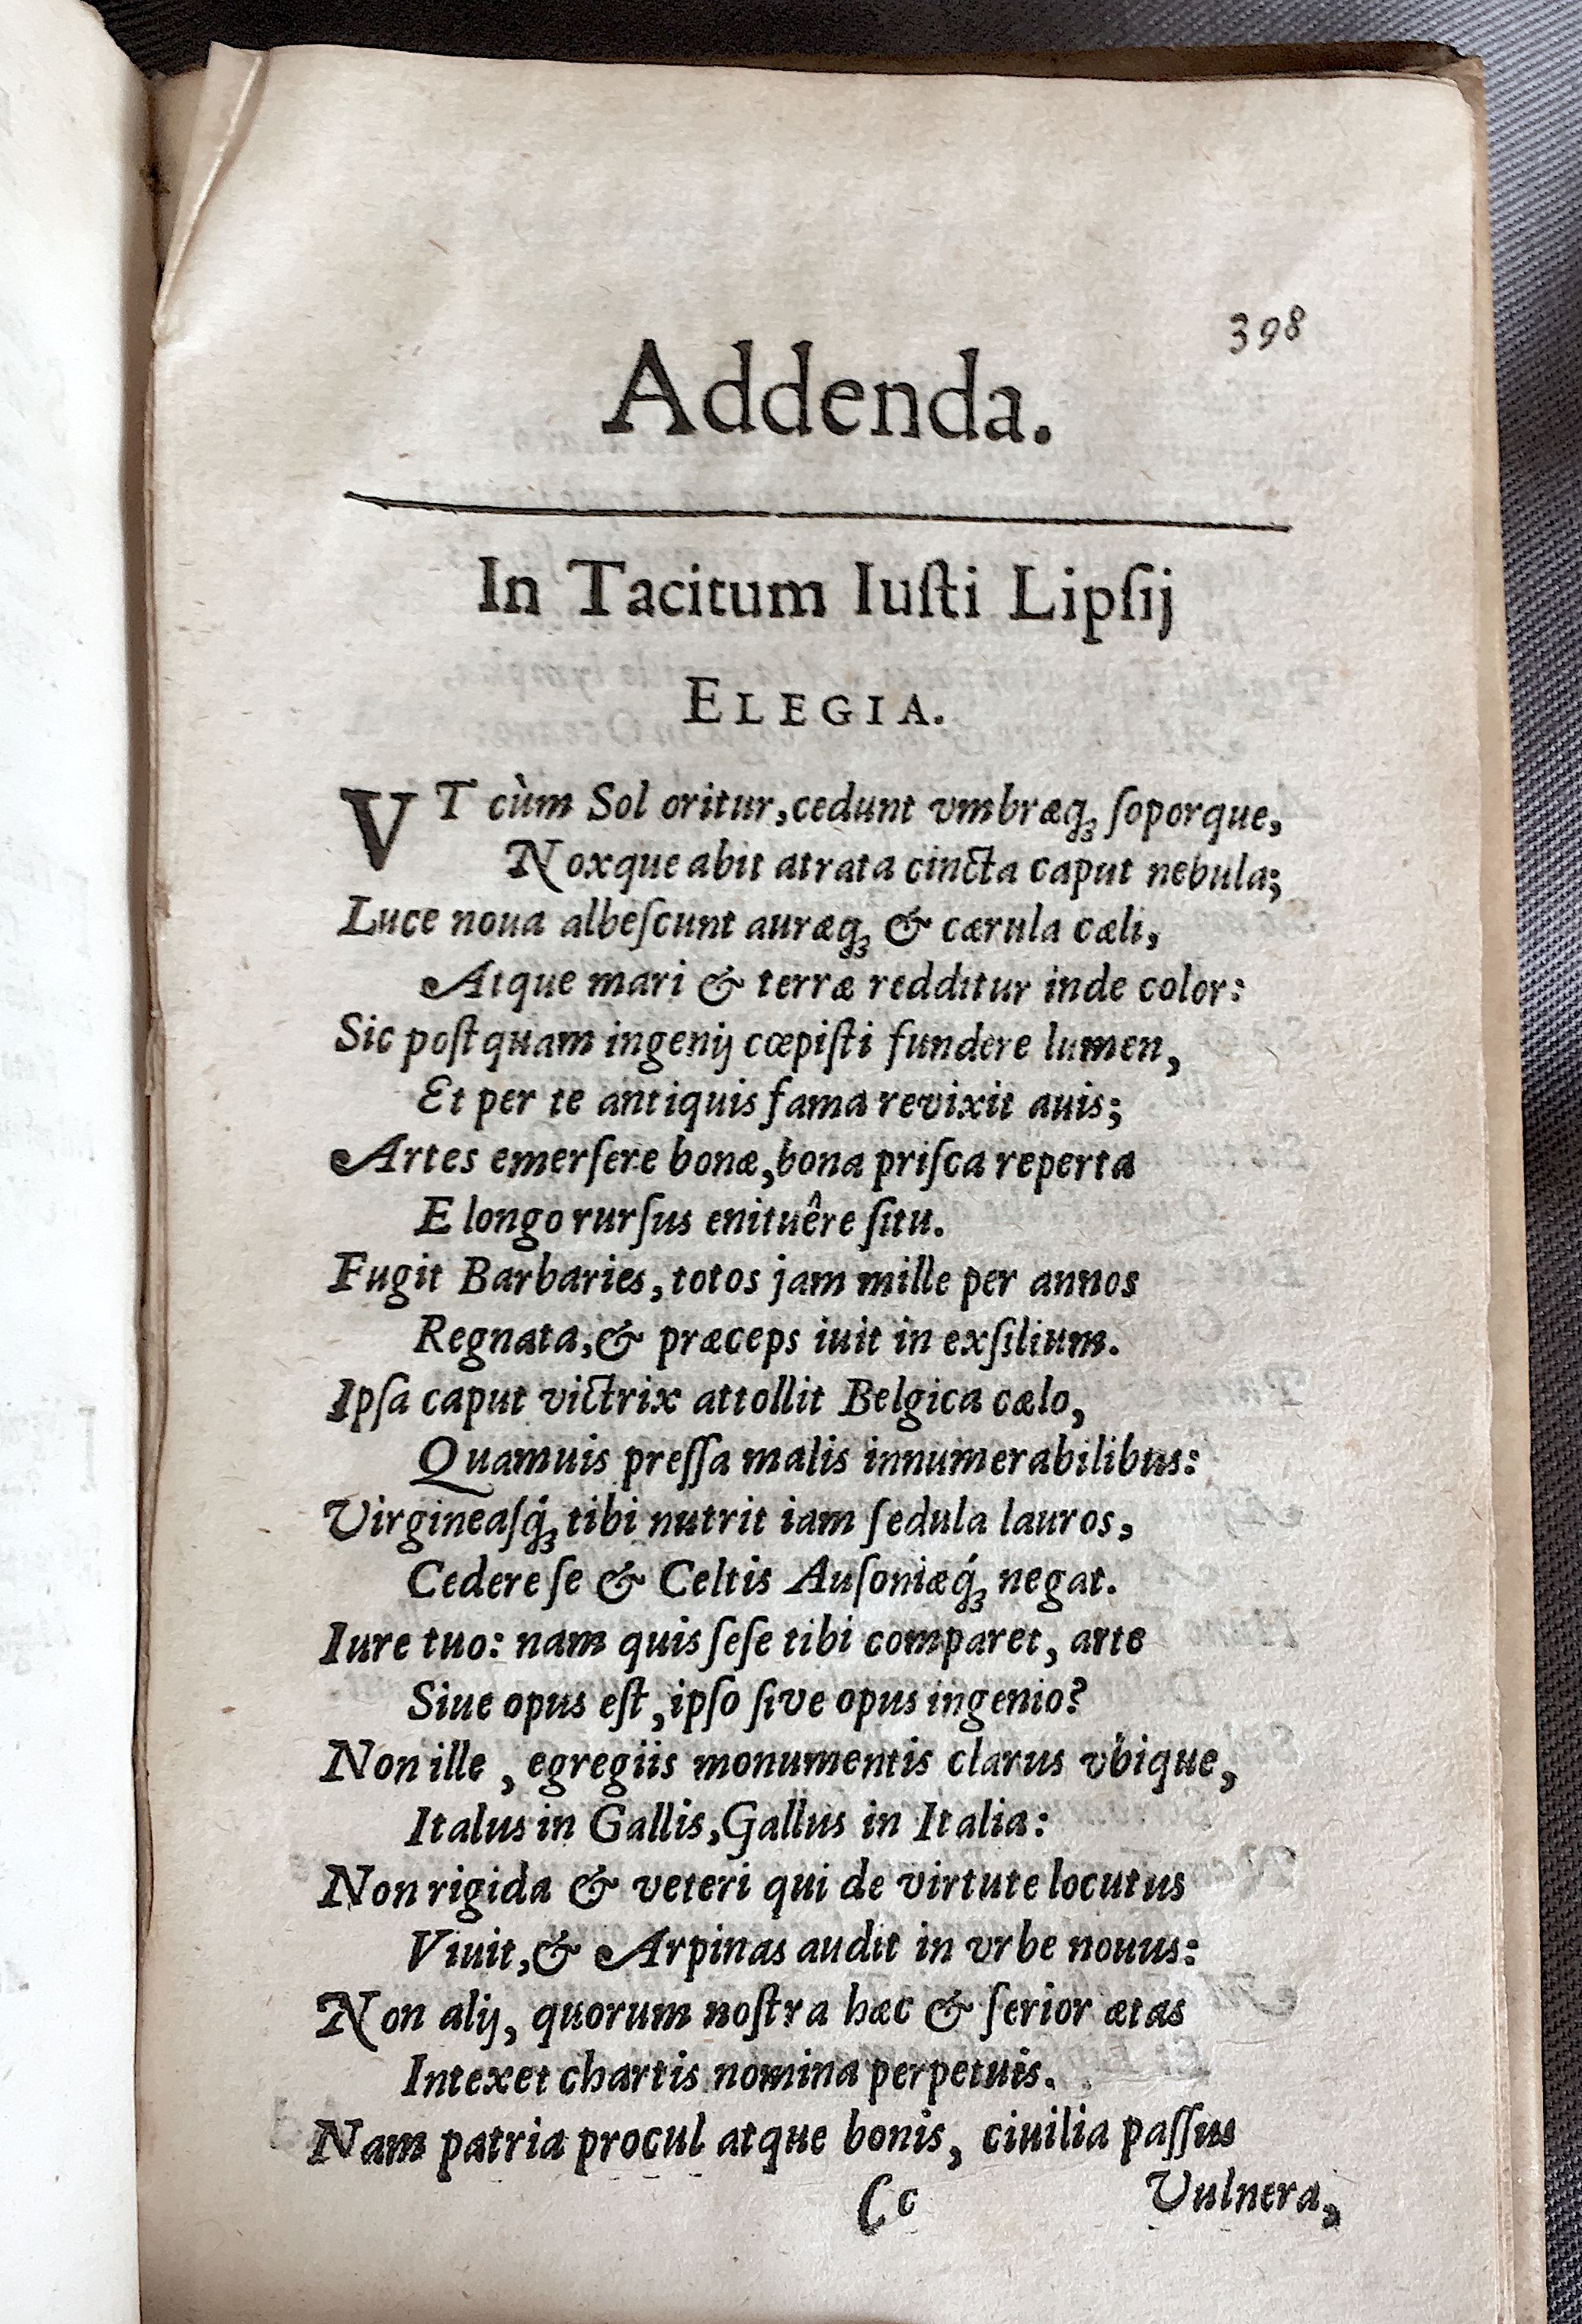 398
Addenda.
In Tacitum Iuſti Lipſij
ELEGIA.
VT cùm Sol oritur, cedunt vmbræq́ꝫ ſoporque,
Noxque abit atrata cincta caput nebula;
Luce noua albeſcunt auræqꝫ & cærula cæli,
Atque mari & terræ redditur inde color:
Sic poſtquam ingenij cœpiſti fundere lumen,
Et per te antiquis fama revixit auis;
Artes emerſere bonæ, bona priſca reperta
E longo rurſus enituêre ſitu.
Fugit Barbaries, totos jam mille per annos
Regnata, & præceps iuit in exſilium.
Ipſa caput victrix attollit Belgica cælo,
Quamuis preſſa malis innumerabilibus:
Virgineaſq́ꝫ tibi nutrit iam ſedula lauros,
Cedere ſe & Celtis Auſoniæq́ꝫ negat.
Iure tuo: nam quis ſeſe tibi comparet, arte
Siue opus eſt, ipſo ſive opus ingenio?
Non ille, egregiis monumentis clarus vbique,
Italus in Gallis, Gallus in Italia:
Non rigida & veteri qui de virtute locutus
Viuit, & Arpinas audit in vrbe nouus:
Non alij, quorum noſtra hæc & ſerior ætas
Intexet chartis nomina perpetuis.
Nam patria procul atque bonis, ciuilia paſſus
Cc Vulnera,